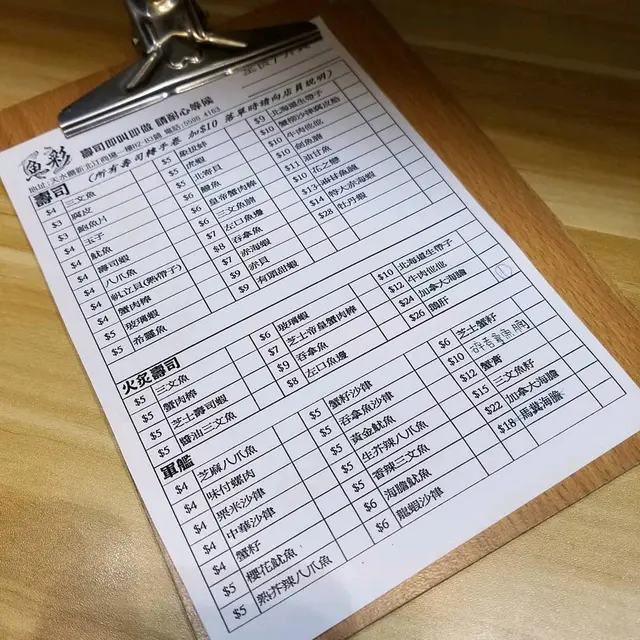 魚彩
壽司即叫即做 請耐心等候
地址: 天水圍新北江商場
電話:
(所有壽司轉手卷 加$10 落單時請向店員說明)
壽司
$4 三文魚
$3 腐皮
$3 鮑魚片
$4 玉子
$4 魷魚
$4 壽司蝦
$4 八爪魚
$4 帆立貝(熟帶子)
$4 蟹肉棒
$5 玻璃蝦
$5 希靈魚
$5
$5 虎蝦
$5 北寄貝
$6 鰻魚
$6 皇帝蟹肉棒
$6 三文魚腩
$7 左口魚邊
$8 吞拿魚
$7 赤海蝦
$9 赤貝
$9 有頭甜蝦
$9 北海道生帶子
$10
$10 牛肉位位
$11 劍魚腩
$11 油甘魚
$10 花之戀
$13 油甘魚腩
$14 特大赤海蝦
$28 牡丹蝦
火炙壽司
$5 三文魚
$5 蟹肉棒
$5 芝士壽司蝦
$5 醬油三文魚
$6 玻璃蝦
$7 芝士帝皇蟹肉棒
$9 吞拿魚
$8 左口魚邊
$10 北海道生帶子
$12 牛肉位位
$24 加拿大海膽
$26 鵝肝
軍艦
$4 芝麻八爪魚
$4 味付螺肉
$4 粟米沙律
$4 中華沙律
$4 蟹籽
$5 櫻花魷魚
$5 熟芥辣八爪魚
$5 蟹籽沙律
$5 吞拿魚沙律
$5 黃金魷魚
$5 生芥辣八爪魚
$5 香辣三文魚
$6 海膽魷魚
$6 龍蝦沙律
$6 芝士蟹籽
$10
$12 蟹膏
$15 三文魚籽
$22 加拿大海膽
$18 馬糞海膽